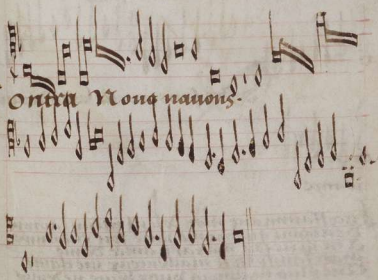 Contra Nous navons.